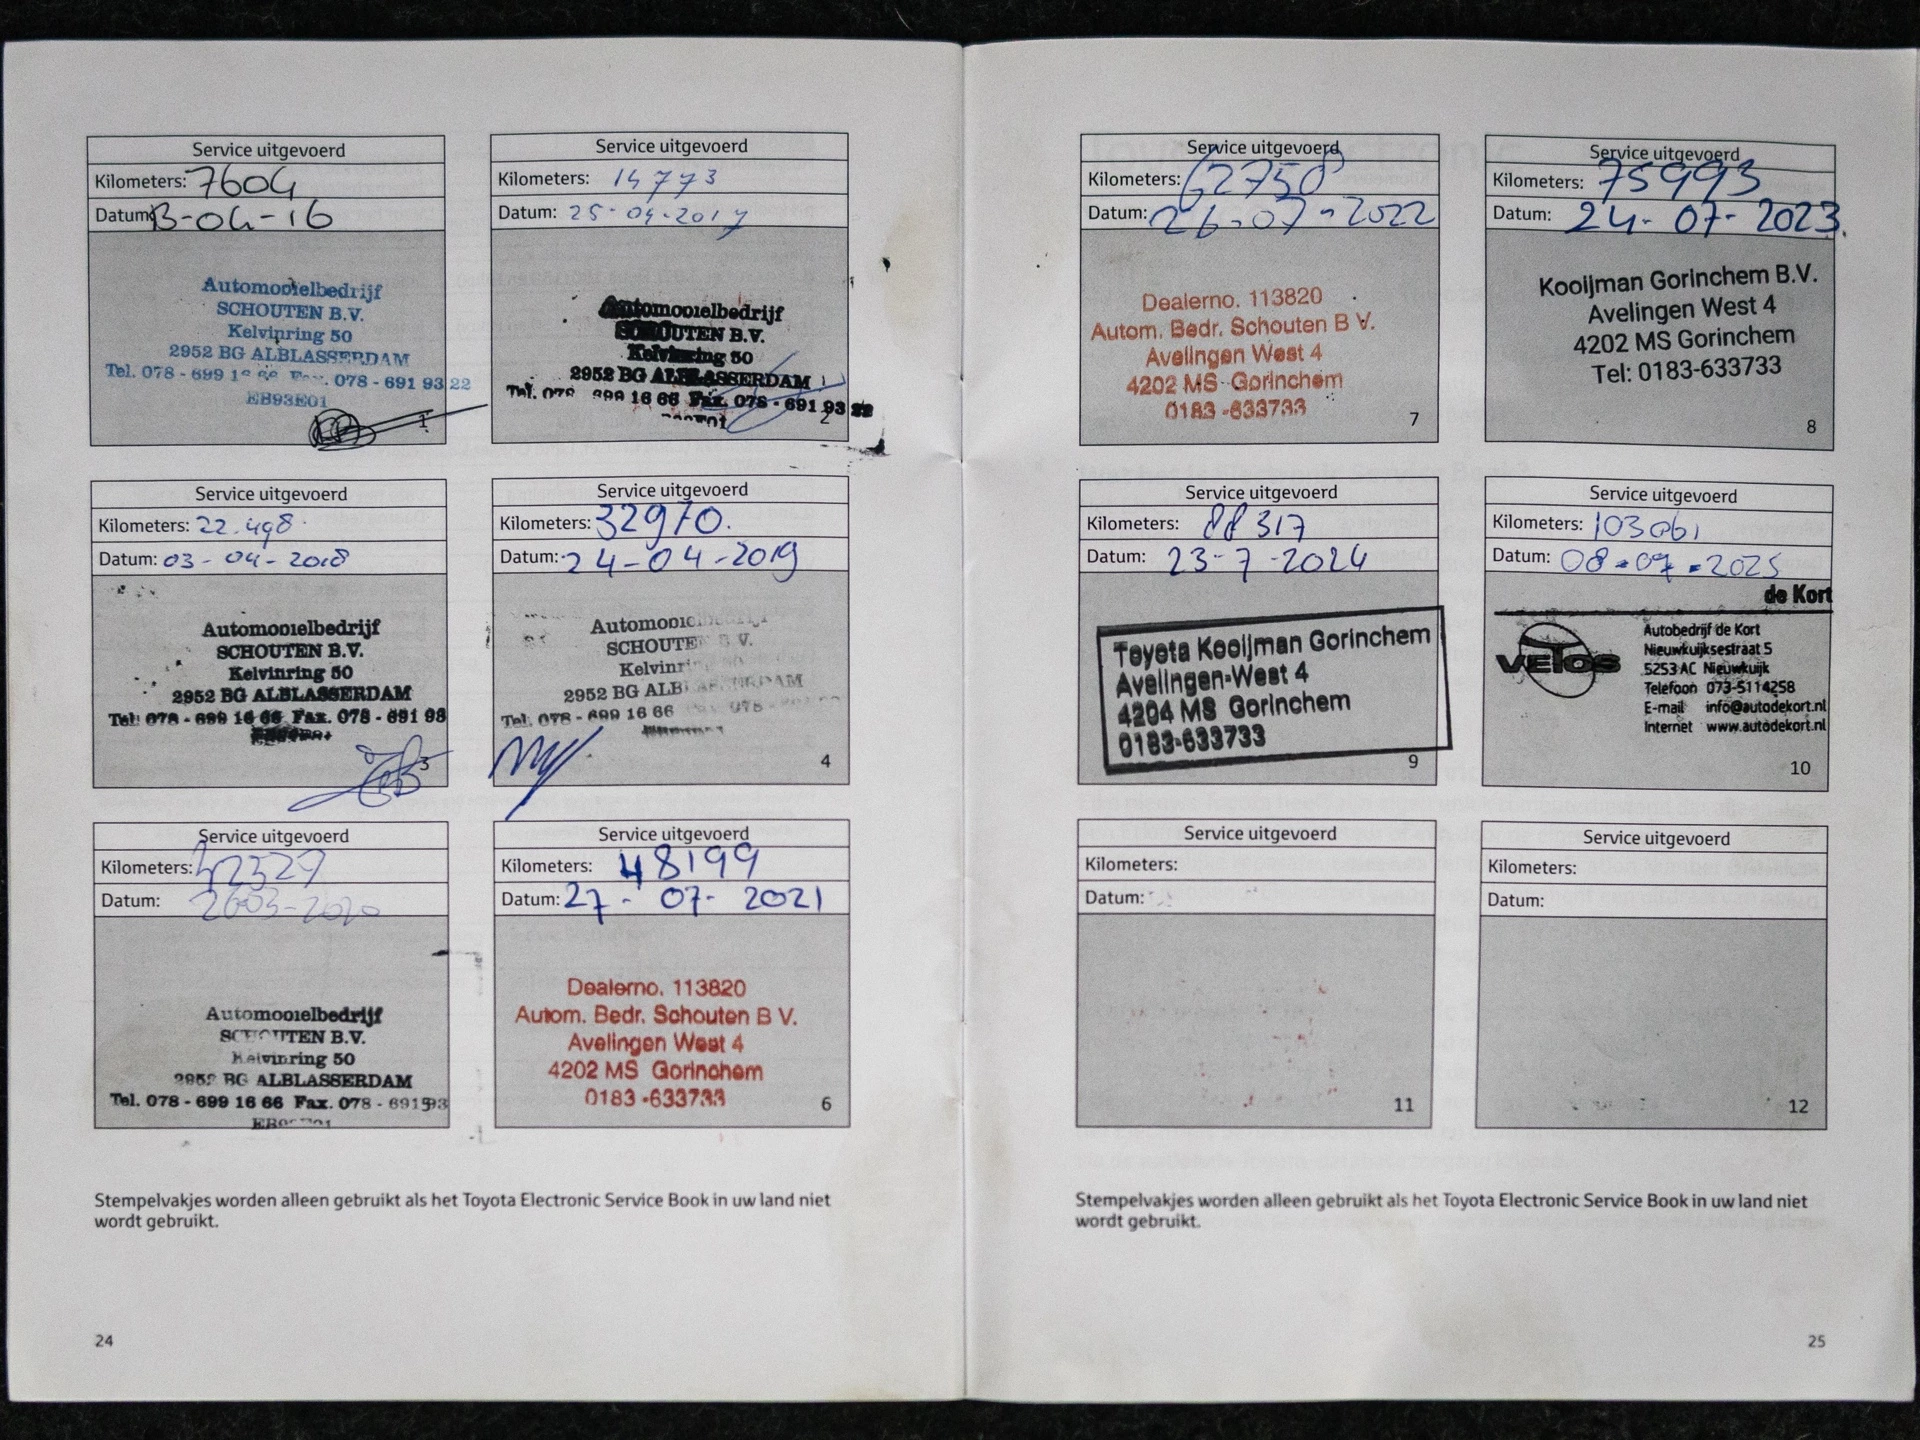 Service uitgevoerd
Kilometers: 7604
Datum: 13-04-16
Automobielbedrijf
SCHOUTEN B.V.
Kelvinring 50
2952 BG ALBLASSERDAM
Tel. 078 - 699 1 Fax. 078 - 691 93 22
EB93E01
1
Service uitgevoerd
Kilometers: 14773
Datum: 25-04-2017
Automobielbedrijf
SCHOUTEN B.V.
Kelvinring 50
2952 BG ALBLASSERDAM
Tel. 078 699 16 66 Fax. 078 - 691 93 22
2
Service uitgevoerd
Kilometers: 22.498
Datum: 03-04-2018
Automobielbedrijf
SCHOUTEN B.V.
Kelvinring 50
2952 BG ALBLASSERDAM
Tel. 078 - 699 16 66 Fax. 078 - 691 93
3
Service uitgevoerd
Kilometers: 32970.
Datum: 24-04-2019
Automobielbedrijf
SCHOUTEN B.V.
2952 BG
Tel. 078 - 699 16 66 078
4
Service uitgevoerd
Kilometers: 42327
Datum: 2603-2020
Automobielbedrijf
SCHOUTEN B.V.
Kelvinring 50
2952 BG ALBLASSERDAM
Tel. 078 - 699 16 66 Fax. 078 - 691 93
5
Service uitgevoerd
Kilometers: 48199
Datum: 27-07-2021
Dealerno. 113820
Autom. Bedr. Schouten B V.
Avelingen West 4
4202 MS Gorinchem
0183 -633733
6
Stempelvakjes worden alleen gebruikt als het Toyota Electronic Service Book in uw land niet
wordt gebruikt.
24
Service uitgevoerd
Kilometers: 62758
Datum: 26-07-2022
Dealerno. 113820
Autom. Bedr. Schouten B V.
Avelingen West 4
4202 MS Gorinchem
0183 -633733
7
Service uitgevoerd
Kilometers: 75993
Datum: 24-07-2023.
Kooijman Gorinchem B.V.
Avelingen West 4
4202 MS Gorinchem
Tel: 0183-633733
8
Service uitgevoerd
Kilometers: 88317
Datum: 23-7-2024
Toyota Kooijman Gorinchem
Avelingen-West 4
4204 MS Gorinchem
0183-633733
9
Service uitgevoerd
Kilometers: 103061
Datum: 08-07-2025
de Kort
VETOS
Autobedrijf de Kort
Nieuwkuijksestraat 5
5253 AC Nieuwkuijk
Telefoon 073-5114258
E-mail info@autodekort.nl
Internet www.autodekort.nl
10
Service uitgevoerd
Kilometers:
Datum:
11
Service uitgevoerd
Kilometers:
Datum:
12
Stempelvakjes worden alleen gebruikt als het Toyota Electronic Service Book in uw land niet
wordt gebruikt.
25